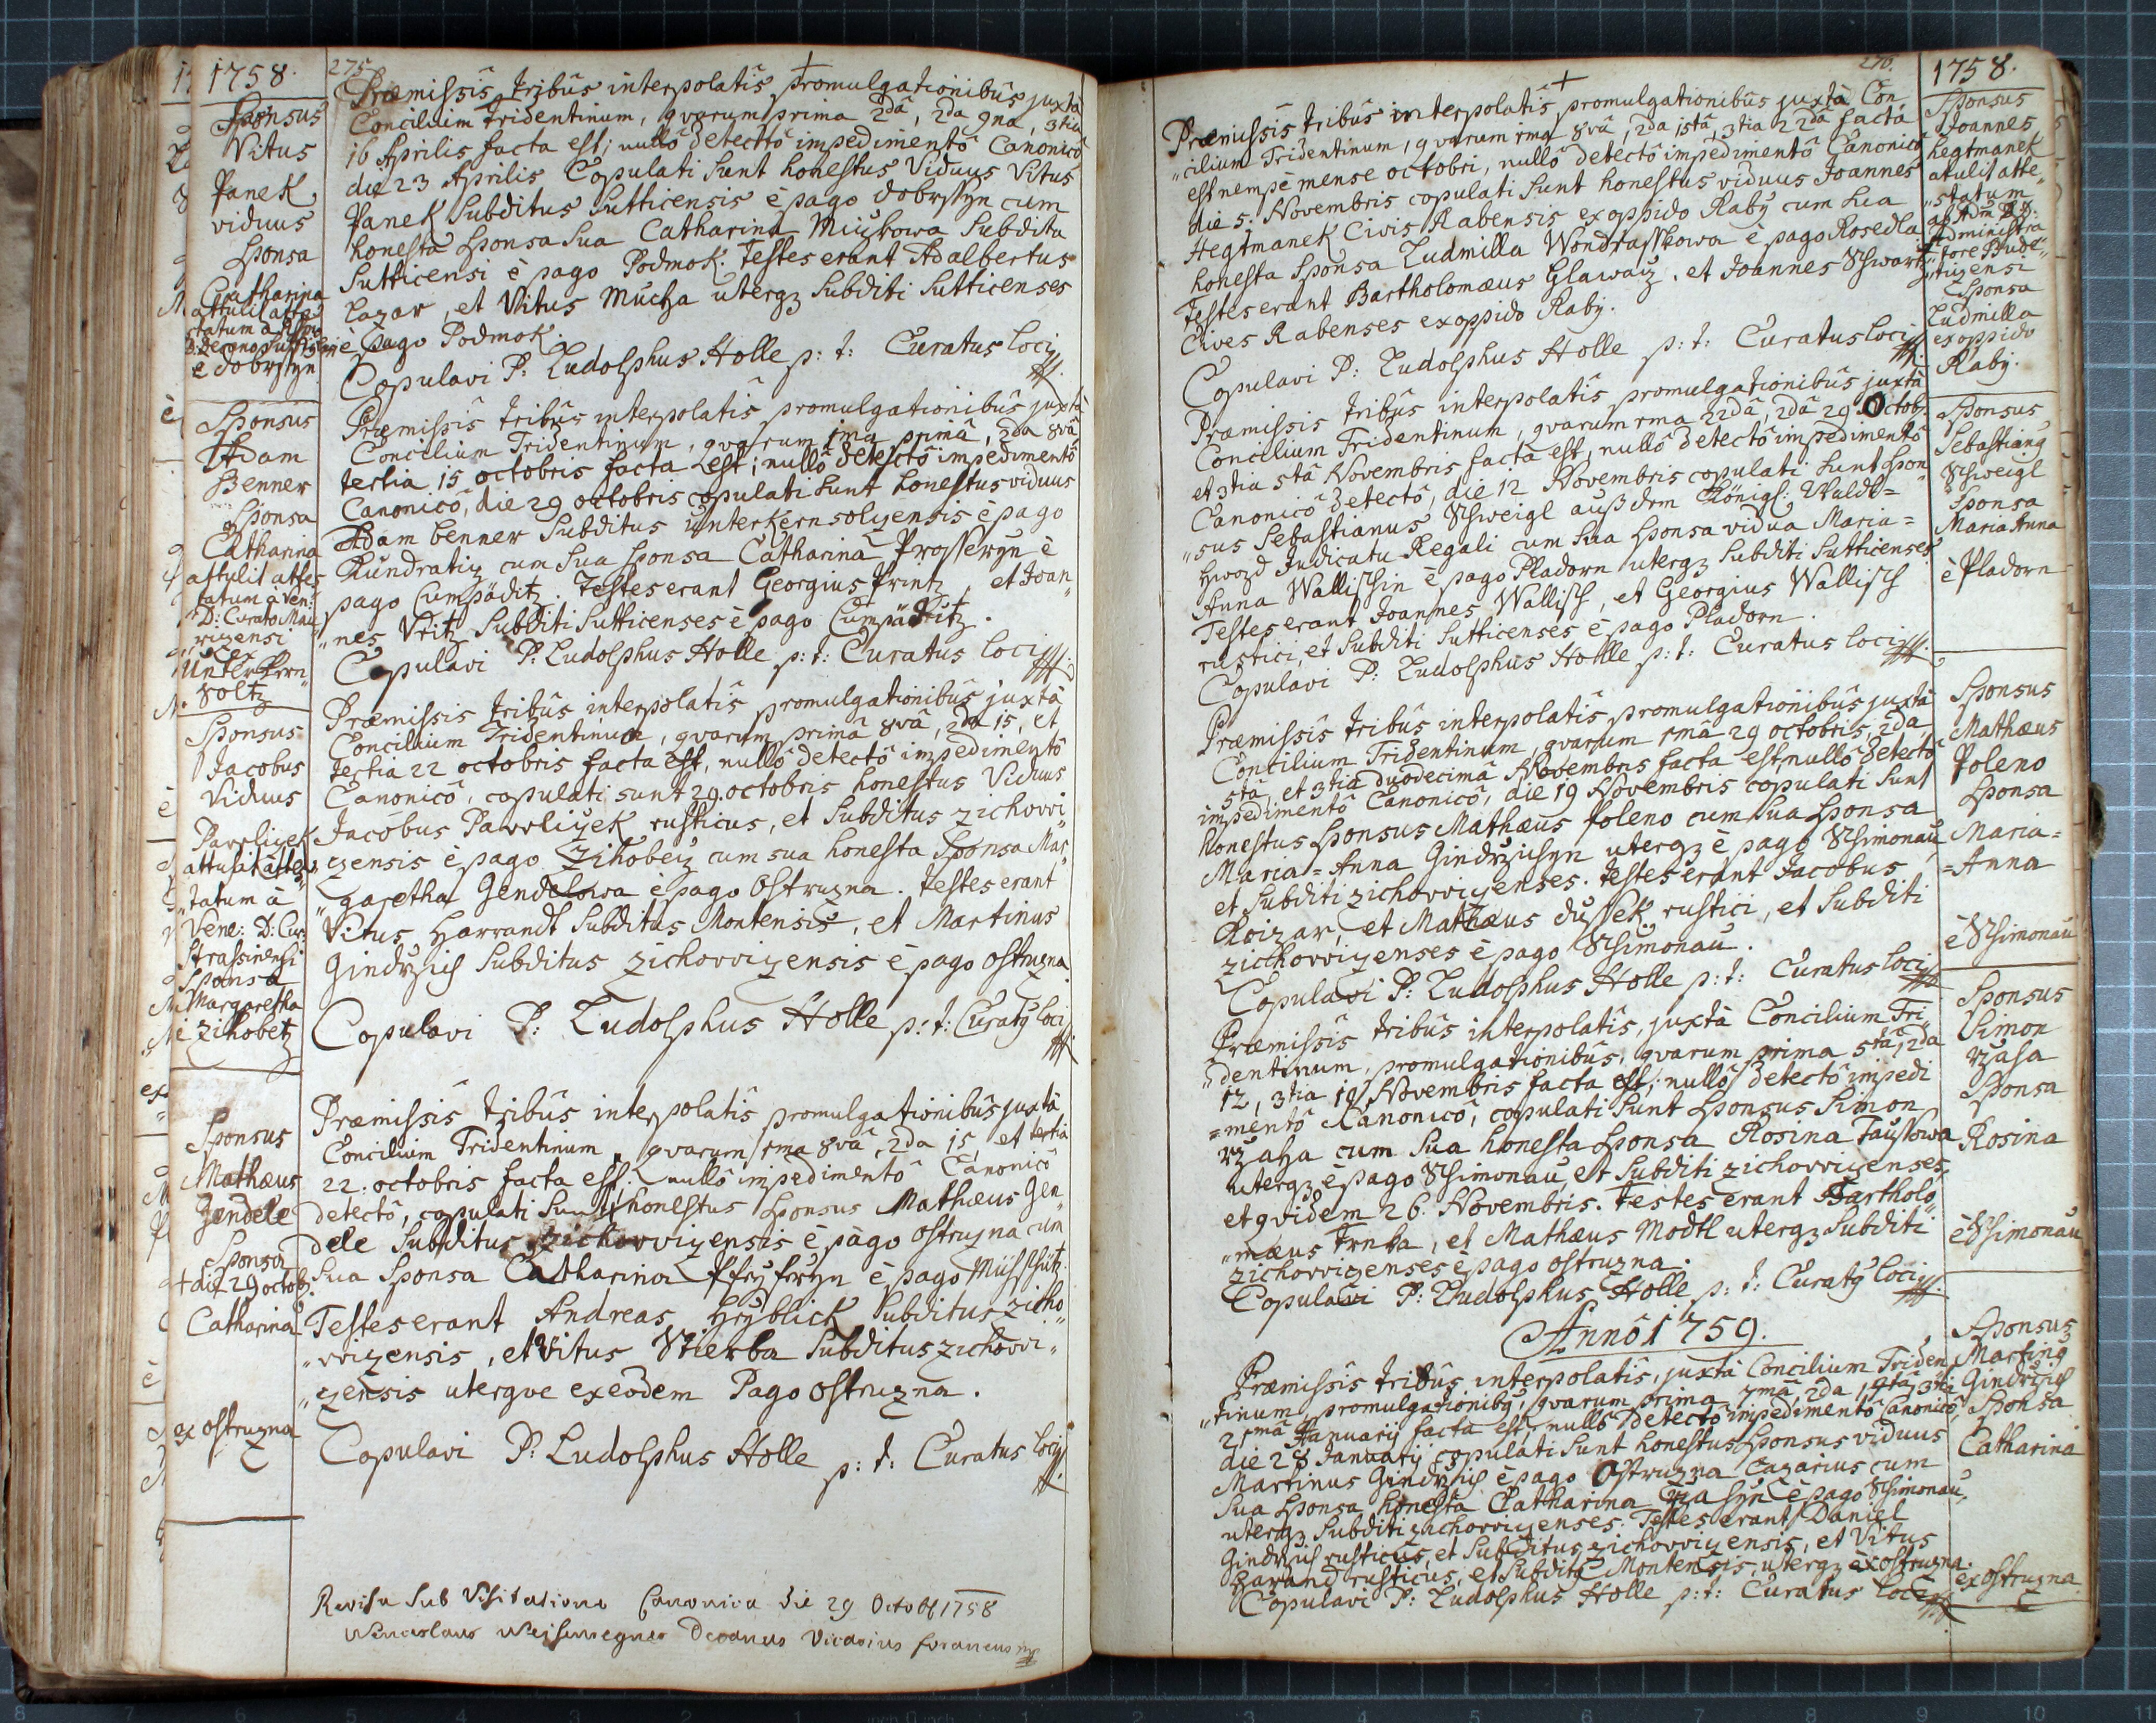 1758.
Sponsus
Vitus
Panek
viduus
Sponsa
Catharina
attulit attes
tatum à
è Dobrssyn
275
Præmissis tribûs interpolatîs promulgationibûs juxtà
Concilium Tridentinum, qvarum prima 2dâ, 2da 9na, 3tia
16 Aprilis facta est; nullô detectô impedimentô Canonicô
die 23 Aprilis Copulati sunt honestus Viduus Vitus
Panek Subditus Sutticensis è pago Dobrssyn cum
honesta Sponsa Sua Catharina Subdita
Sutticensi è pago Podmok. Testes erant Adalbertus
Lazar, et Vitus Mucha uterqz Subditi Sutticenses
è pago Podmok.
Copulavi P: Ludolphus Holle p: t: Curatus Loci
Sponsus
Adam
Benner
Sponsa
Catharina
attulit attes
tatum à Ven:
D: Curato Mau
rizensi
ex
Unterkern
soltz
Præmissis tribûs interpolatîs promulgationibûs juxtà
Concilium Tridentinum, qvarum 1ma primâ, 2da 8vâ
tertia 15 octobris facta est; nullô detectô impedimentô
Canonicô, die 29 octobris copulati sunt honestus viduus
Adam Benner Subditus Unterkernsolzensis è pago
Kundratiz cum sua sponsa Catharina Prosseryn è
pago Cumpäditz. Testes erant Georgius Printz, et Joan„
„nes Veitz Subditi Sutticenses è pago Cumpäditz.
Copulavi P: Ludolphus Holle p: t: Curatus Loci
Sponsus
Jacobus
Viduus
Pavvliczek
attulit attes„
„tatum à
Vene: D: Cur:
Strassinensi
Sponsa
Margaretha
è Zihobetz
Præmissis tribûs interpolatîs promulgationibûs juxtà
Concilium Tridentinum, qvarum primâ 8vâ, 2da 15, et
tertia 22 octobris facta est, nullô detectô impedimentô
Canonicô, copulati sunt 29. octobris honestus Viduus
Jacobus Pavvliczek rusticus, et Subditus zichovvi„
zensis è pago Zihobez cum sua honesta Sponsa Mar„
„garetha Gendelowa è pago Ostruzna. Testes erant
Vitus Harrandt Subditus Montensis, et Martinus
Gindrzich Subditus zichovvizensis è pago Ostruzna
Copulavi P: Ludolphus Holle p: t: Curatq Loci
Sponsus
Mathæus
Gendele
Sponsa
+ die 29 octob:
Catharina
ex Ostruzna
Præmissis tribûs interpolatîs promulgationibûs juxtà
Concilium Tridentinum, qvarum 1ma 8vâ, 2da 15, et tertia
22. octobris facta est: nullô impedimentô Canonicô
detectô, copulati sunt honestus Sponsus Mathæus Gen„
dele Subditus zichovvizensis è pago Ostruzna cum
Sua Sponsa Catharina è pago Müsschütz.
Testes erant Andreas Hryblick Subditus zicho„
„vvizensis, et Vitus Stierba Subditus zichovvi„
„zensis uterqve exeôdem Pago Ostruzna.
Copulavi P: Ludolphus Holle
p: t: Curatus Loci
Revisa Sub Visitatione Canonica die 29 Octob 1758
Wenceslaus Decanus Vicarius foraneus mp
276.
1758.
Præmissis tribûs interpolatîs promulgationibûs juxtà Con
„cilium Tridentinum, qvarum 1ma 8vâ, 2da 15tâ, 3tia 22dâ facta
est nempè mense octobri, nullô detectô impedimentô Canonicô
die 5. Novembris copulati sunt honestus viduus Joannes
Hegtmanek Civis Rabensis ex oppido Raby cum sua
honesta Sponsa Ludmilla Wondrasskowa è pago Rosedla
Testes erant Bartholomæus Glawacz, et Joannes Schwartz
Cives Rabenses ex oppido Raby.
Copulavi P: Ludolphus Holle p: t: Curatus Loci
Sponsus
Joannes
Hegtmanek
atulit atte„
„statum
Administra
„tore Bude„
„tizensi
Sponsa
Ludmilla
ex oppido
Raby.
Præmissis tribûs interpolatîs promulgationibûs juxtà
Concilium Tridentinum, qvarum 1ma 22dâ, 2dâ 29 Octob:
et 3tia 5tâ Novembris facta est, nullô detectô impedimentô
Canonicô detectô, die 12 Novembris copulati sunt Spon„
„sus Sebastianus Schweigl auß dem Königl: Waldt=
Hwozd Judicatu Regali cum sua Sponsa vidua Maria=
Anna Wallischin è pago Pladorn uterqz Subditi Sutticenses
Testes erant Joannes Wallisch, et Georgius Wallisch
rustici, et Subditi Sutticenses è pago Pladorn.
Copulavi P: Ludolphus Holle p: t: Curatus Loci
Sponsus
Sebastianq
Schweigl
Sponsa
Maria Anna
è Pladorn
Præmissis tribûs interpolatîs promulgationibûs juxtà
Concilium Tridentinum, qvarum 1mâ 29 octobris, 2da,
5tâ, et 3tia duodecimâ Novembris facta est nullô detectô
impedimentô Canonicô, die 19 Novembris copulati sunt
honestus Sponsus Mathæus Poleno cum sua Sponsa
Maria=Anna Gindrzichyn uterqz è pago Schimonau
et Subditi zichovvizenses. Testes erant Jacobus
Roizar, et Mathæus Dussek rustici, et Subditi
zicthovvizenses è pago Schimonau.
Copulavi P: Ludolphus Holle p: t: Curatus Loci
Sponsus
Mathæus
Poleno
Sponsa
Maria=
=Anna
è Schimonau
Præmissis tribûs interpolatîs, juxtà Concilium Tri„
„dentinum, promulgationibûs, qvarum prima 5tâ, 2da
12, 3tia 19 Novembris facta est; nullô detectô impedi
=mentô Canonicô, copulati sunt Sponsus Simon
rzaha cum Sua honesta Sponsa Rosina Faustowa
uterqz è pago Schimonau, et Subditi zichovvizenses,
et qvidem 26. Novembris. Testes erant Bartholo„
„mæus Trnka, et Mathæus Modtl uterqz Subditi
zichovvizenses è pago Ostruzna.
Copulavi P: Ludolphus Holle p: t: Curatq Loci
Sponsus
Simon
rzaha
Sponsa
Rosina
è Schimonau
Annô 1759.
Præmissis tribûs interpolatîs, juxtà Concilium Triden
„tinum promulgationibq, qvarum prima 7mâ, 2da 14tâ, 3tia
21mâ Januarij facta est, nullô detectô impedimentô Canonicô,
die 28 Januarij copulati sunt honestus Sponsus viduus
Martinus Gindrzich è pago Ostruzna Cazarius cum
Sua Sponsa honesta Catharina è pago Schimonau,
uterqz Subditi zichovvizenses. Testes erant Daniel
Gindrzich rusticus, et Subditus zichovvizensis, et Vitus
Harand rusticus, et Subditq Montensis, uterqz ex Ostruzna.
Copulavi P: Ludolphus Holle p: t: Curatus Loci
Sponsus
Martinq
Gindrzich
Sponsa
Catharina
ex Ostruzna